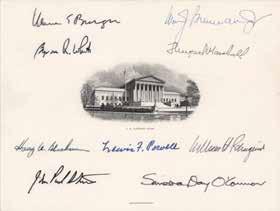 Warren E Burger
Wm. J. Brennan, Jr.
Byron R White
Thurgood Marshall
Harry A. Blackmun
Lewis F. Powell
William H Rehnquist
John Paul Stevens
Sandra Day O'Connor